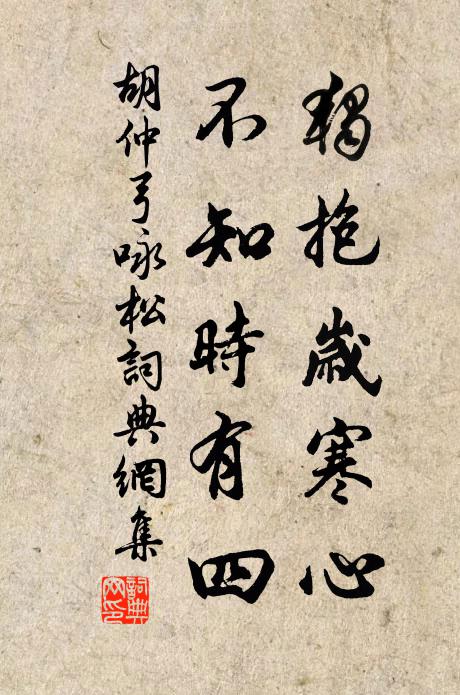 獨抱歲寒心
不知時有四
胡仲弓咏松詞典網集
詞典網印